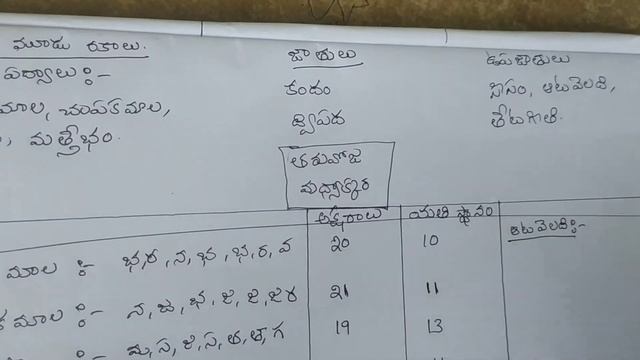 మూడు రకాలు.
జాతులు
ఉపజాతులు
పద్యాలు :-
కందం
సీసం, ఆటవెలది,
మాల, చంపకమాల,
ద్విపద
తేటగీతి.
మత్తేభం.
తరువోజ
మధ్యాక్కర
అక్షరాలు
యతి స్థానం
ఆటవెలది :-
మాల :- భ, ర, న, భ, భ, ర, వ 20 10
కమాల :- న, జ, భ, జ, జ, జ, ర 21 11
మ, స, జ, స, త, త, గ 19 13